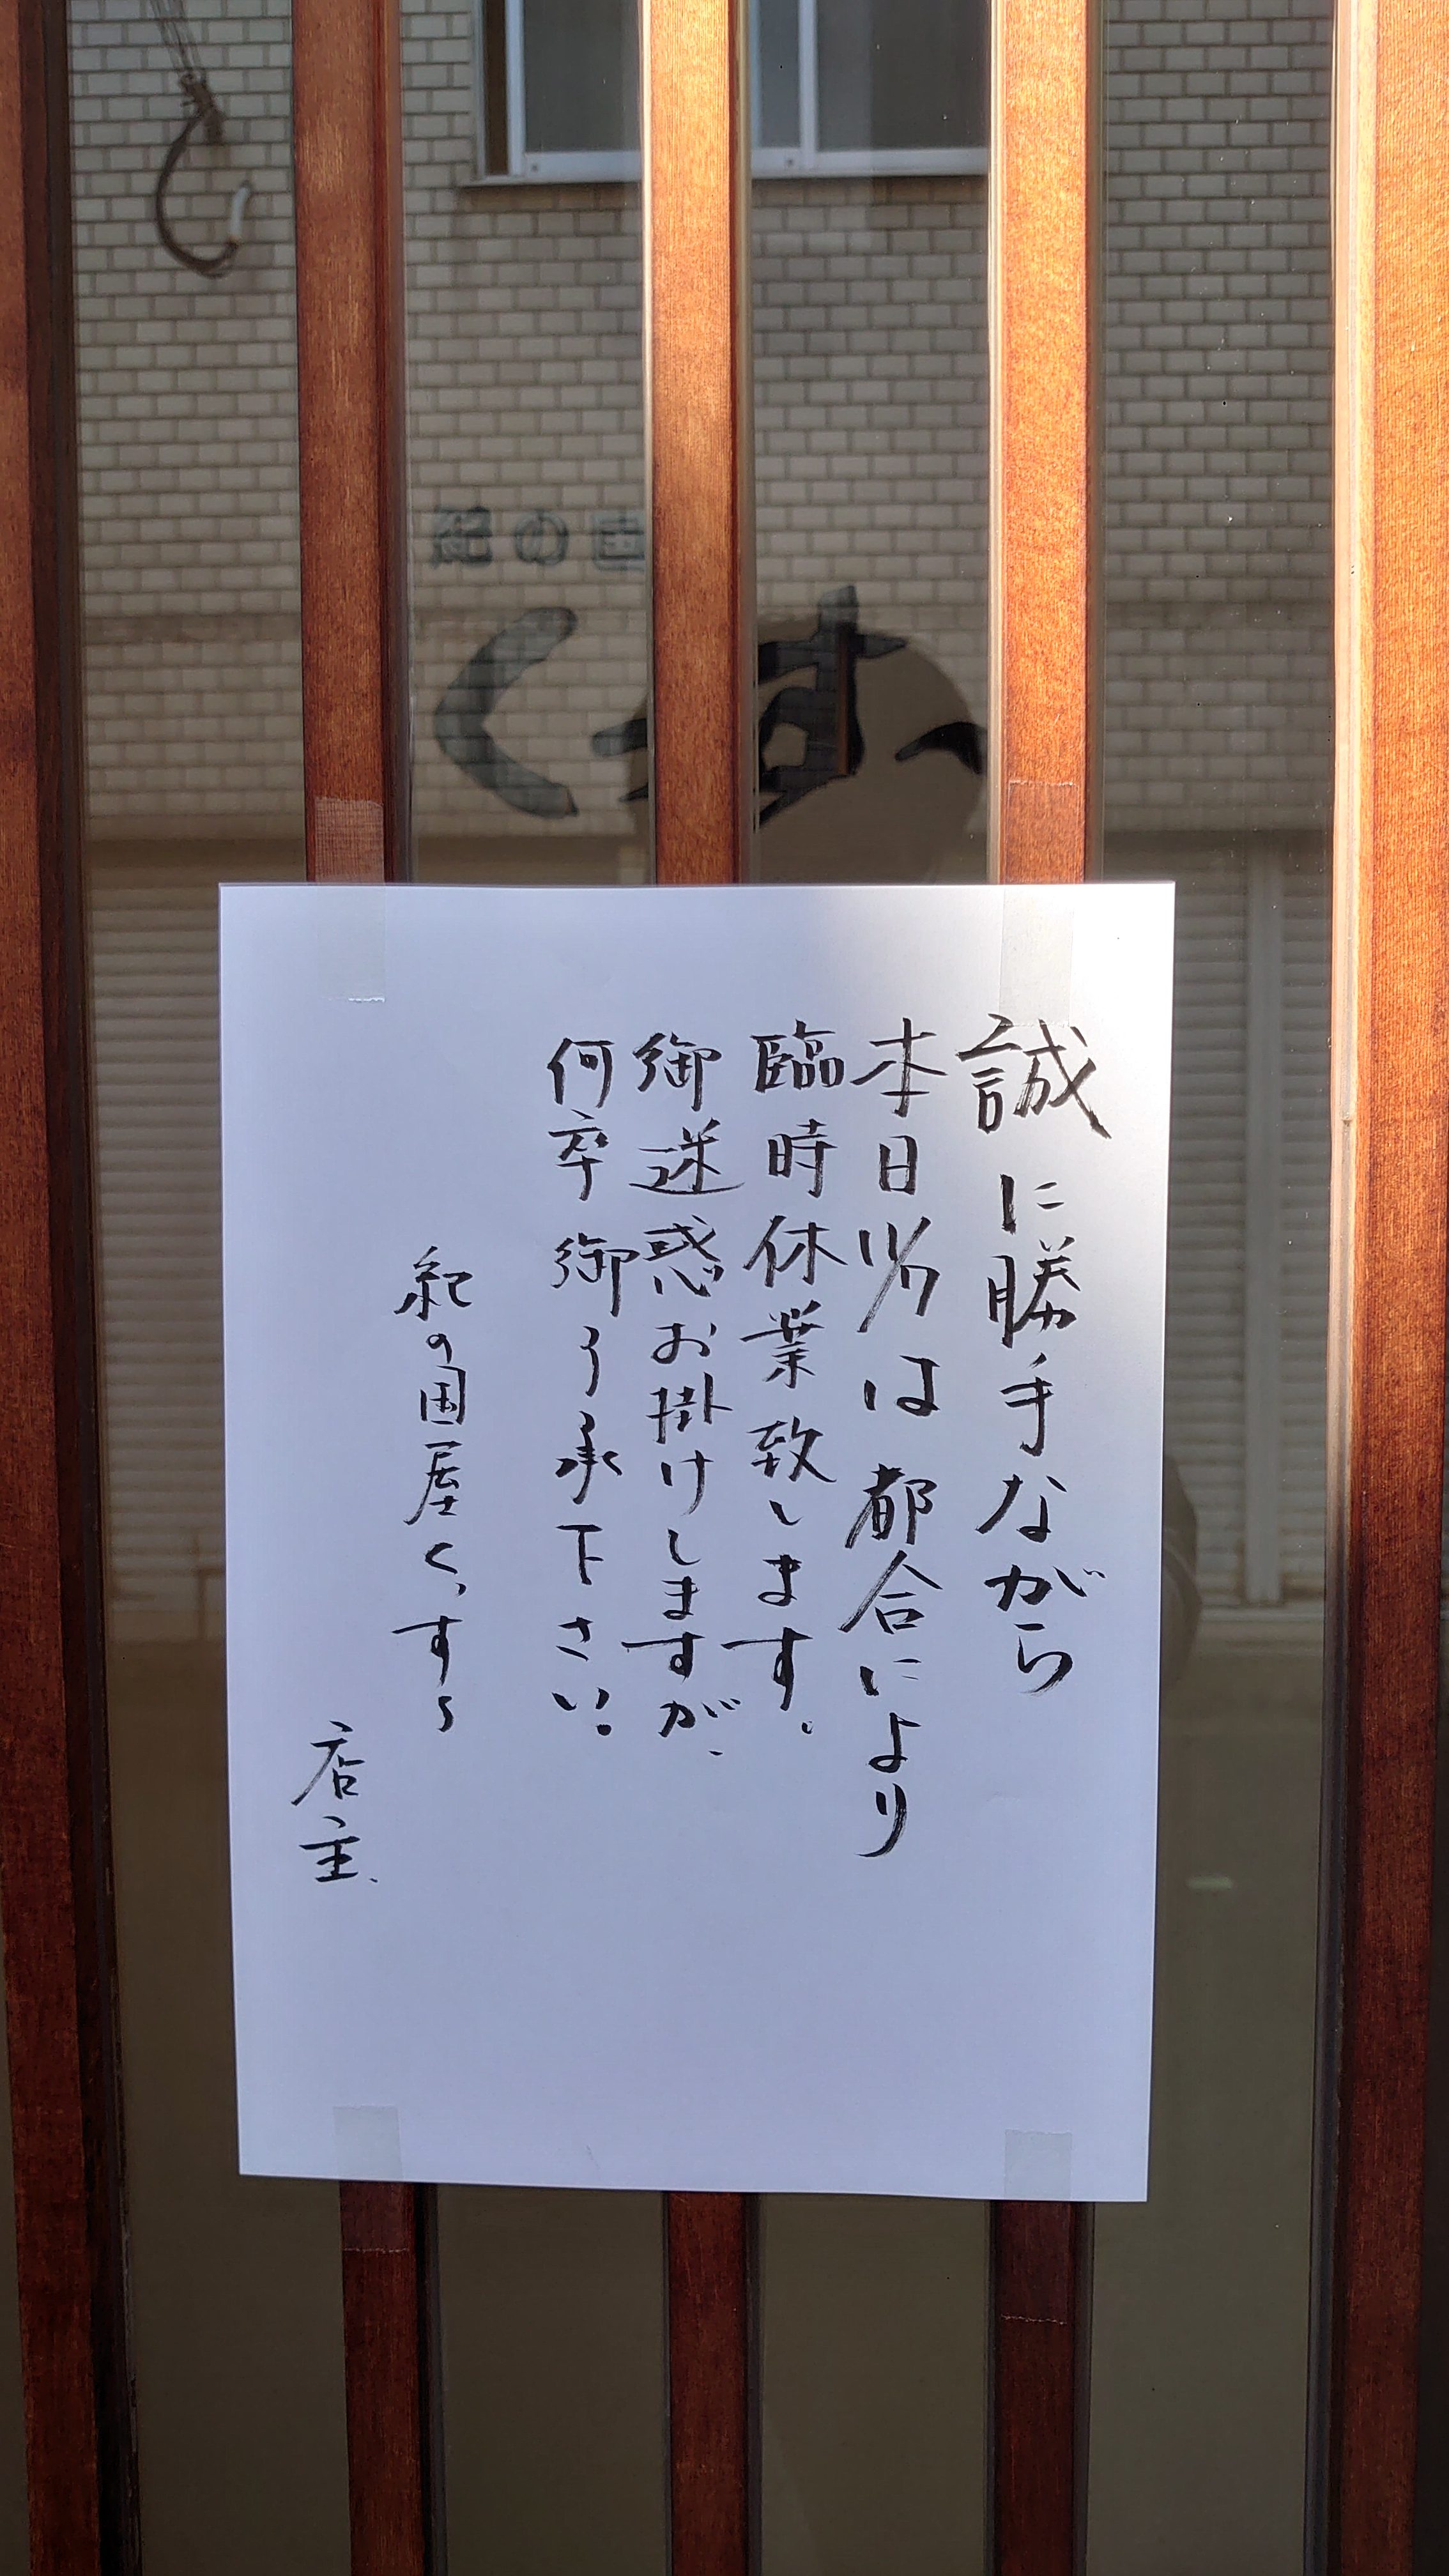 紀の国
くす
誠に勝手ながら
本日は都合により
臨時休業致します。
御迷惑お掛けしますが、
何卒御了承下さい。
紀の国屋
店主、